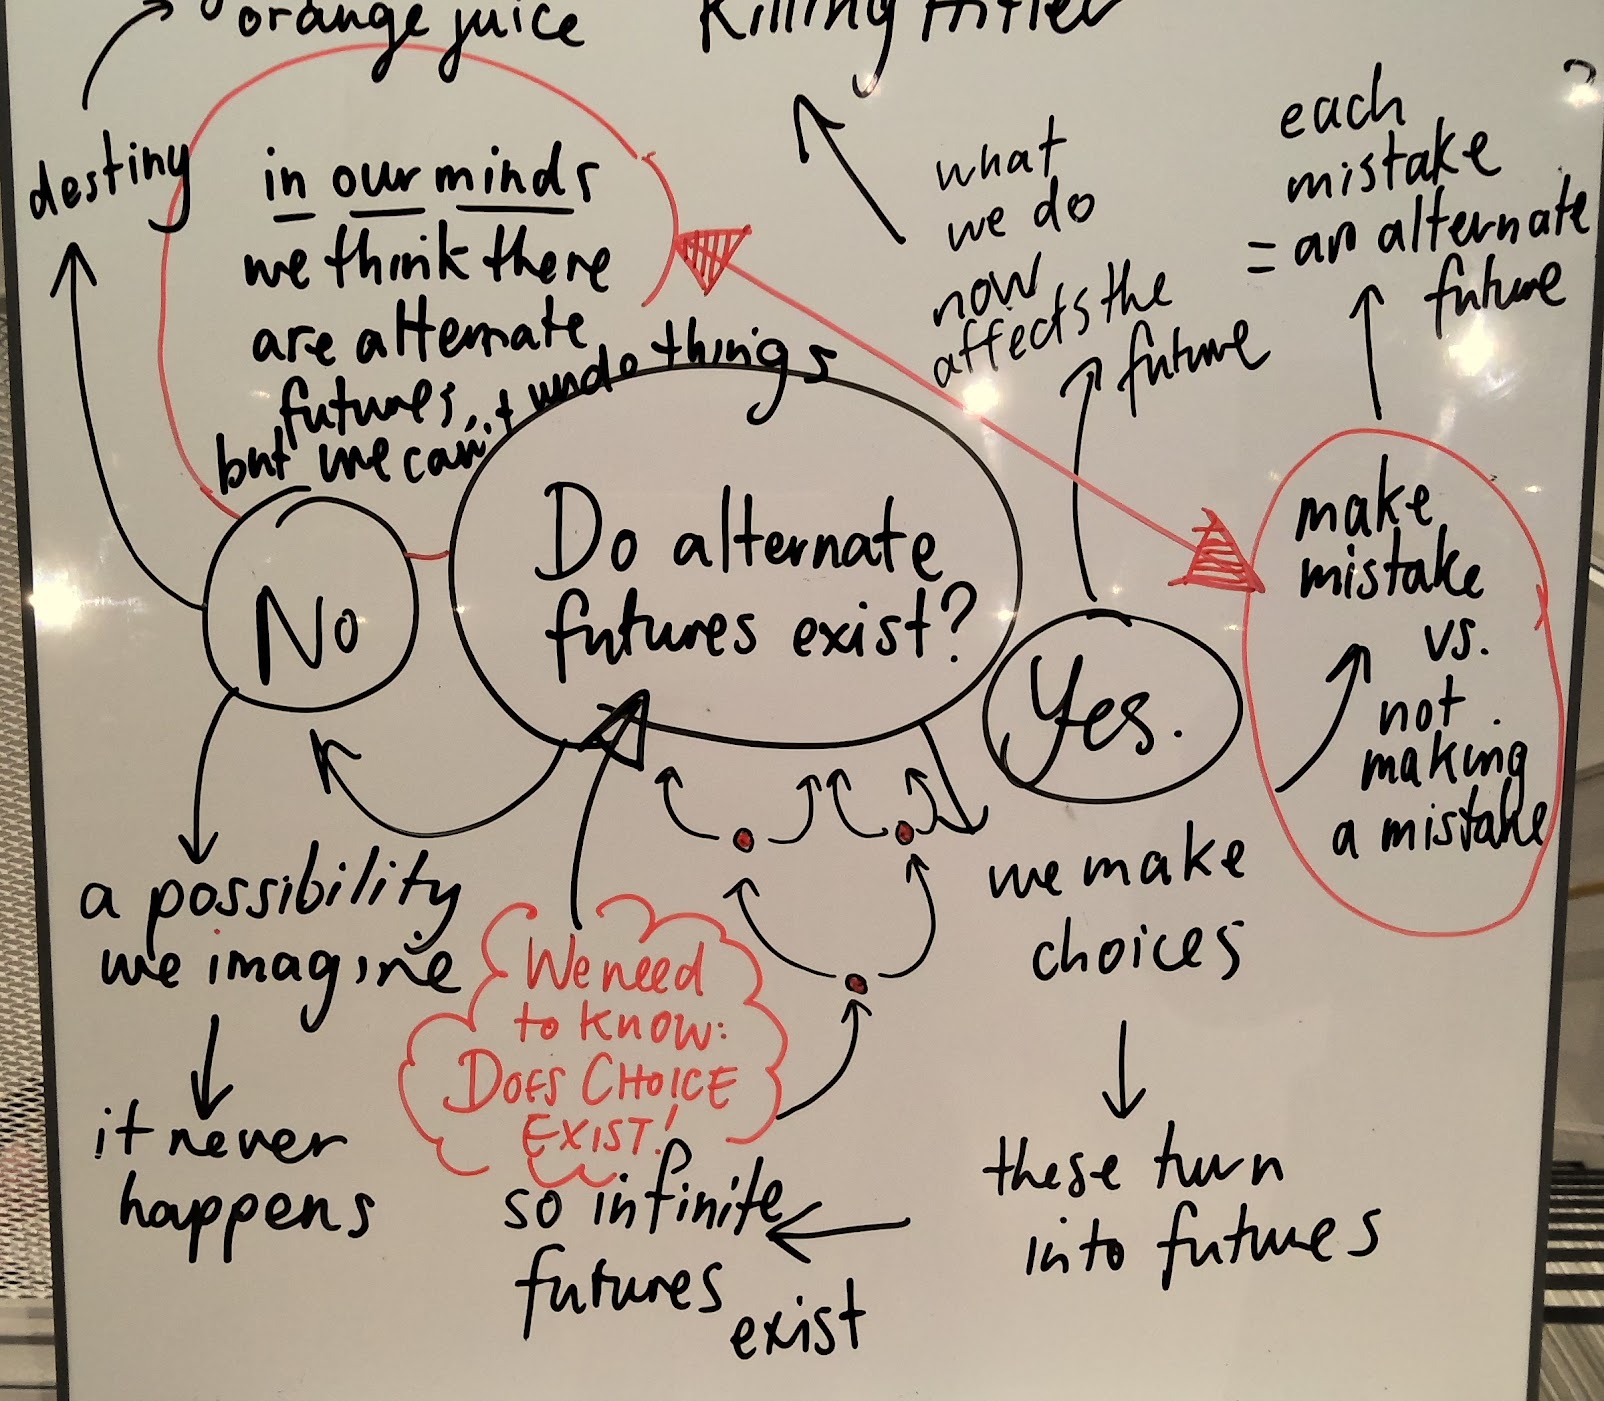 orange juice
Killing Hitler
destiny
in our minds
we think there
are alternate
futures,
but we can't undo things
what
we do
now
affects the
future
?
each
mistake
= an alternate
future
Do alternate
futures exist?
No
Yes.
make
mistake
vs.
not
making
a mistake
a possibility
we imagine
it never
happens
We need
to know:
DOES CHOICE
EXIST!
we make
choices
these turn
into futures
so infinite
futures
exist